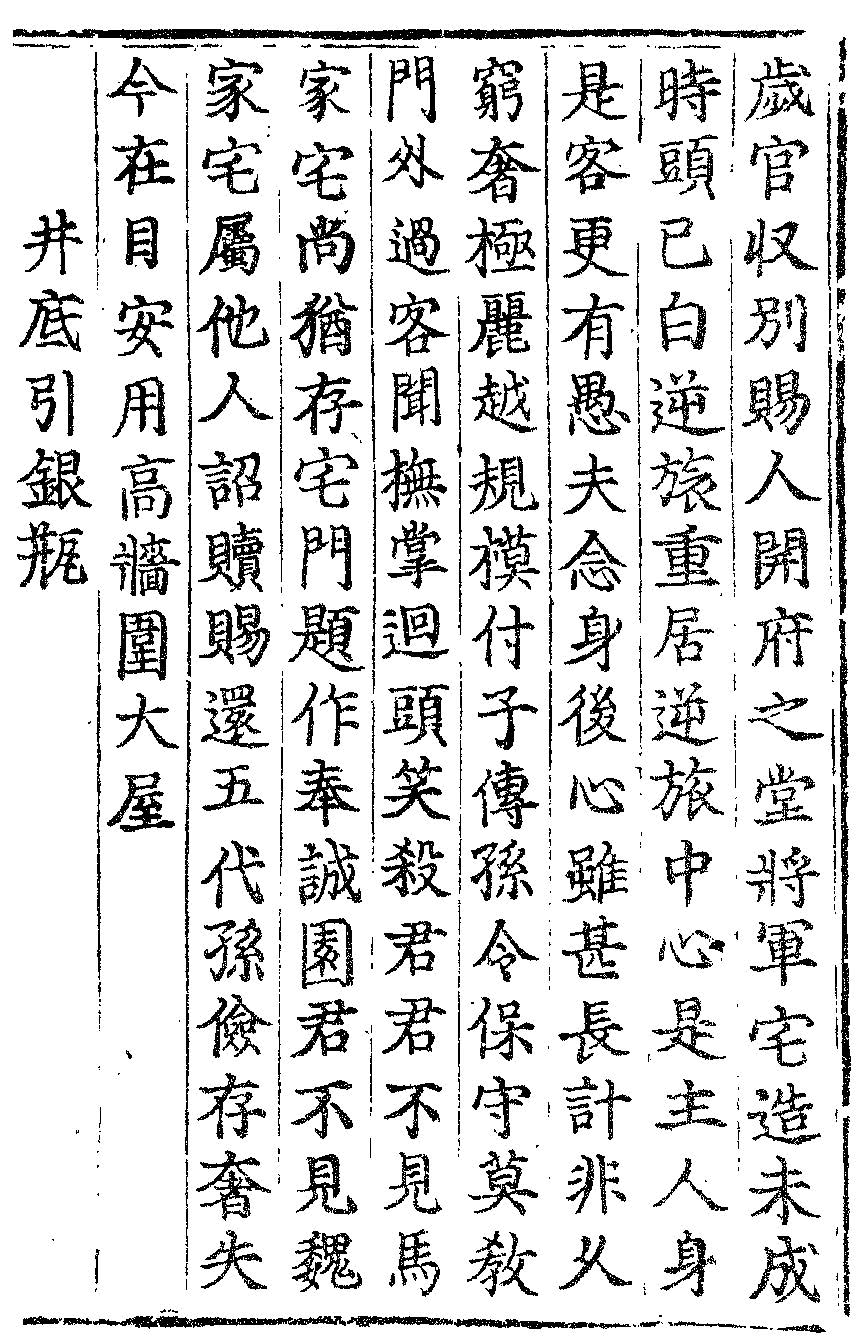 歲官収別賜人開府之堂將軍宅造未成
時頭已白逆旅重居逆旅中心是主人身
是客更有愚夫念身後心雖甚長計非乆
窮奢極麗越規模付子傳孫令保守莫教
門外過客聞撫掌迴頭笑殺君君不見馬
家宅尚猶存宅門題作奉誠園君不見魏
家宅屬他人詔贖賜還五代孫儉存奢失
今在目安用高牆圍大屋
井底引銀瓶